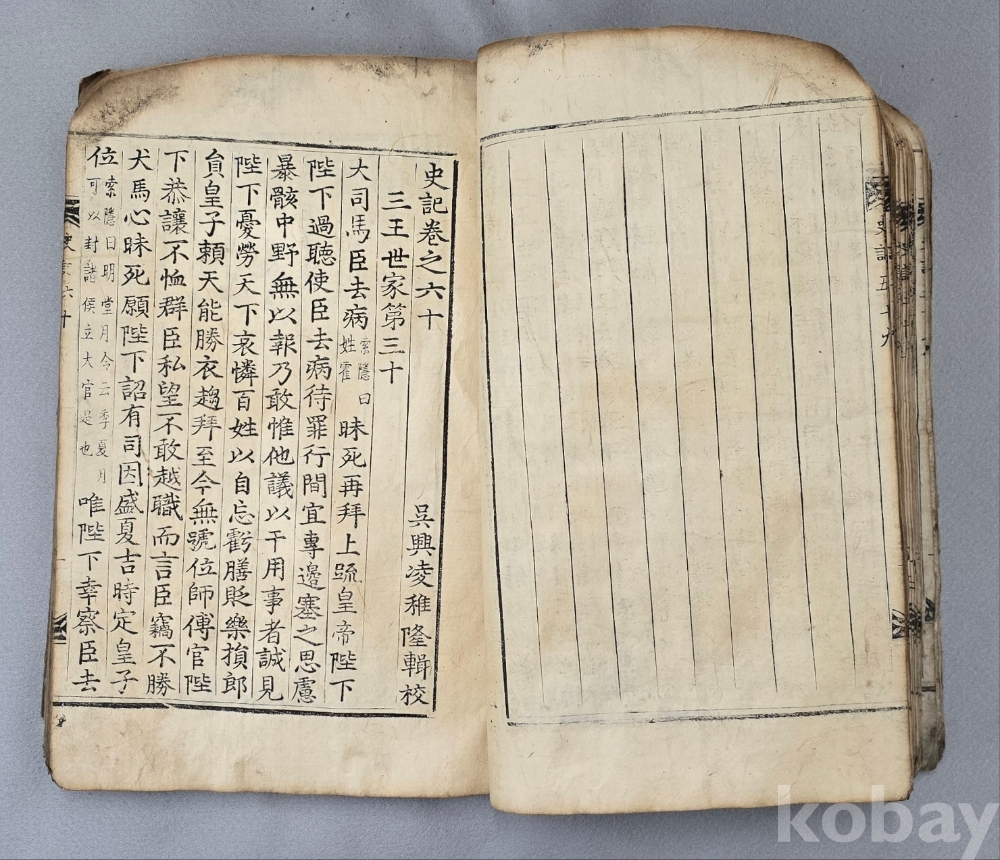 史記卷之六十
吳興凌稚隆輯校
三王世家第三十
大司馬臣去病索隱曰姓霍昧死再拜上疏皇帝陛下
陛下過聽使臣去病待罪行間宜專邊塞之思慮
暴骸中野無以報乃敢惟他議以干用事者誠見
陛下憂勞天下哀憐百姓以自忘虧膳貶樂損郎
員皇子賴天能勝衣趨拜至今無號位師傅官陛
下恭讓不恤群臣私望不敢越職而言臣竊不勝
犬馬心昧死願陛下詔有司因盛夏吉時定皇子
位索隱曰明堂月令云季夏月可以封諸侯立大官是也唯陛下幸察臣去
史記六十
史記五十九
kobay